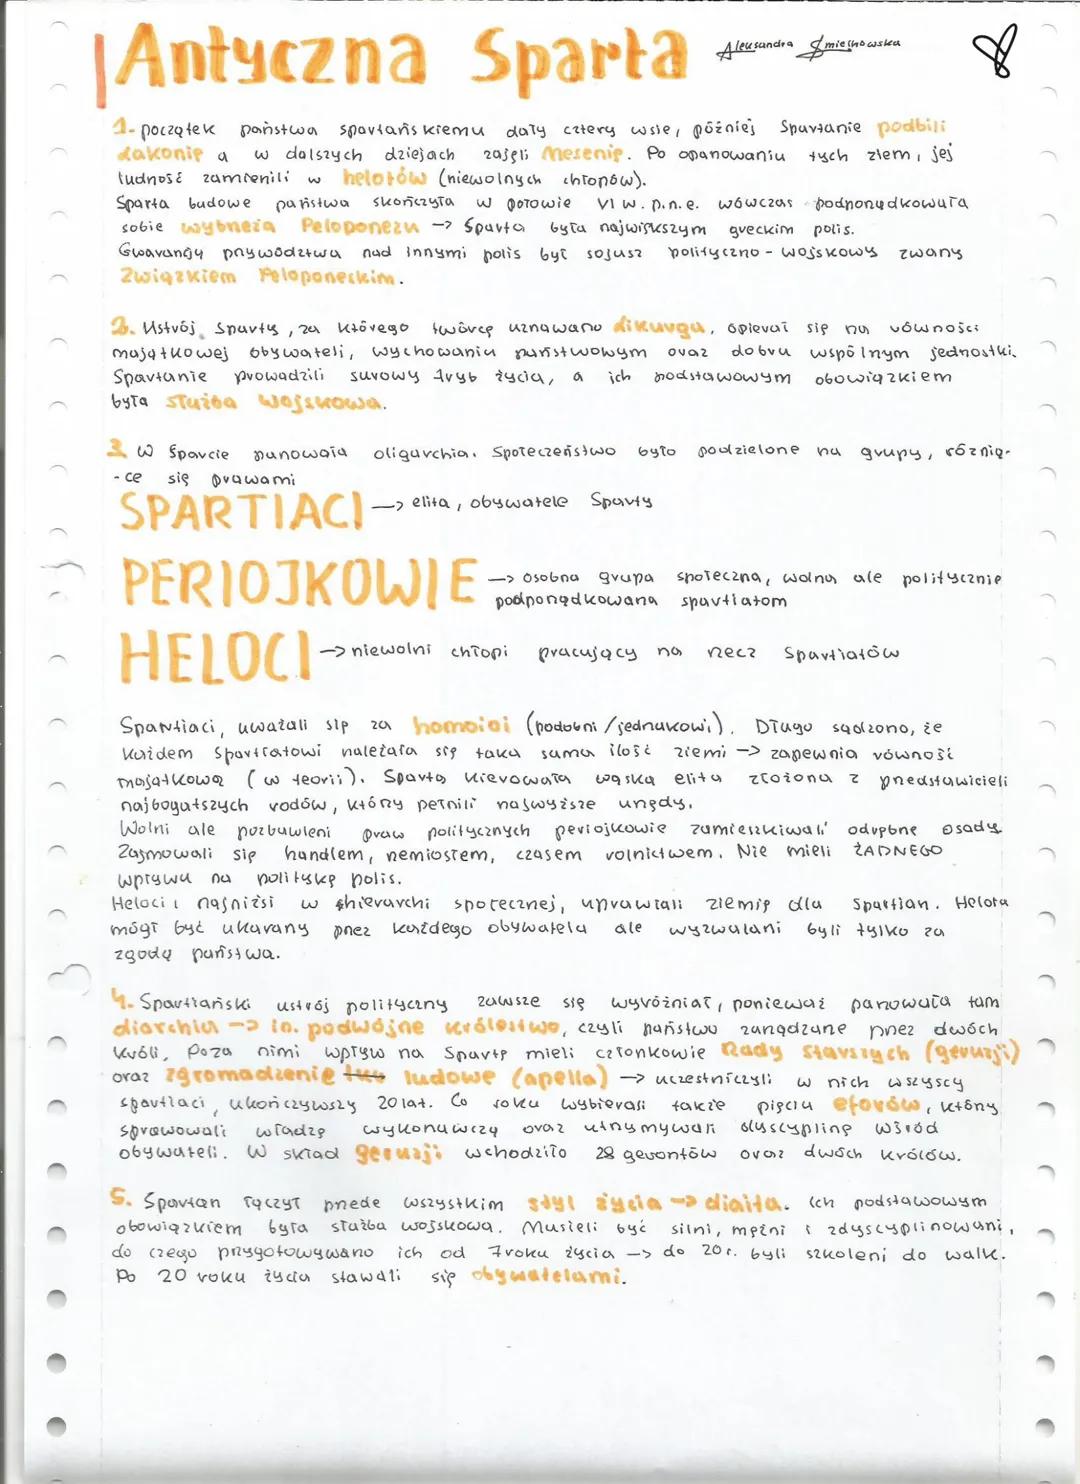 Antyczna Sparta Aleksandra Śmiechowska
1. początek państwa spartańskiemu dały cztery wsie, później Spartanie podbili
Lakonię a w dalszych dziejach zajęli Mesenię. Po opanowaniu tych ziem, jej
ludność zamienili w helotów (niewolnych chłopów).
Sparta budowę państwa skończyła w połowie VI w. p.n.e. wówczas podporządkowała
sobie wybrzeża Peloponezu → Sparta była największym greckim polis.
Gwarancją przywództwa nad innymi polis był sojusz polityczno-wojskowy zwany
Związkiem Peloponeskim.
2. Ustrój Sparty, za którego twórcę uznawano Likurga, opierał się na równości
majątkowej obywateli, wychowaniu państwowym oraz dobru wspólnym jednostki.
Spartanie prowadzili surowy tryb życia, a ich podstawowym obowiązkiem
była służba wojskowa.
3. W Sparcie panowała oligarchia. Społeczeństwo było podzielone na grupy, różnią-
-ce się prawami
SPARTIACI → elita, obywatele Sparty
PERIOJKOWIE → osobna grupa społeczna, wolna ale politycznie
podporządkowana spartiatom
HELOCI → niewolni chłopi pracujący na rzecz Spartiatów
Spartiaci, uważali się za homoioi (podobni/jednakowi). Długo sądzono, że
każdem Spartiatowi należała się taka sama ilość ziemi → zapewnia równość
majątkową (w teorii). Spartą kierowała wąska elita złożona z przedstawicieli
najbogatszych rodów, którzy pełnili najwyższe urzędy.
Wolni ale pozbawieni praw politycznych periojkowie zamieszkiwali odrębne osady.
Zajmowali się handlem, rzemiosłem, czasem rolnictwem. Nie mieli ŻADNEGO
wpływu na politykę polis.
Heloci i najniżsi w hierarchi społecznej, uprawiali ziemię dla Spartian. Helota
mógł być ukarany przez każdego obywatela ale wyzwalani byli tylko za
zgodą państwa.
4. Spartiański ustrój polityczny zawsze się wyróżniał, ponieważ panowała tam
diarchia → in. podwójne królestwo, czyli państwo zarządzane przez dwóch
króli. Poza nimi wpływ na Spartę mieli członkowie Rady Starszych (geruzji)
oraz zgromadzenie ludowe (apella) → uczestniczyli w nich wszyscy
spartiaci, ukończywszy 20 lat. Co roku wybierali także pięciu eforów, którzy
sprawowali władzę wykonawczą oraz utrzymywali dyscyplinę wśród
obywateli. W skład geruzji wchodziło 28 gerontów oraz dwóch królów.
5. Spartan łączył przede wszystkim styl życia → diaita. Ich podstawowym
obowiązkiem była służba wojskowa. Musieli być silni, mężni i zdyscyplinowani,
do czego przygotowywano ich od 7 roku życia → do 20 r. byli szkoleni do walk.
Po 20 roku życia stawali się obywatelami.